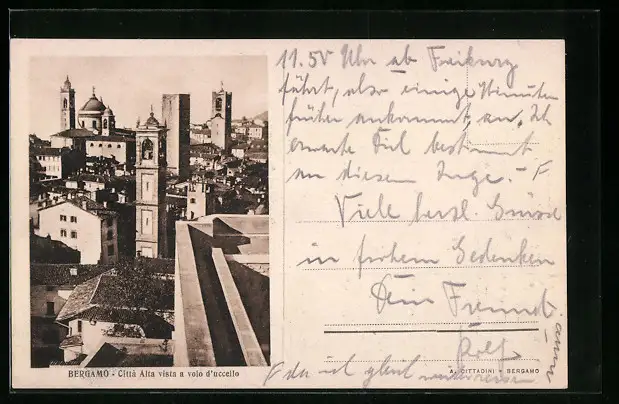 11.50 Uhr ab Freiburg
fährt, also einige Minuten
früher ankommt, an. Ich
erwarte Dich bestimmt
an diesem Zuge. -
Viele herzl. Grüsse
in frohem Gedenken
Dein Freund
Rolf
da ich gleich
BERGAMO - Città Alta vista a volo d'uccello
A. CITTADINI - BERGAMO